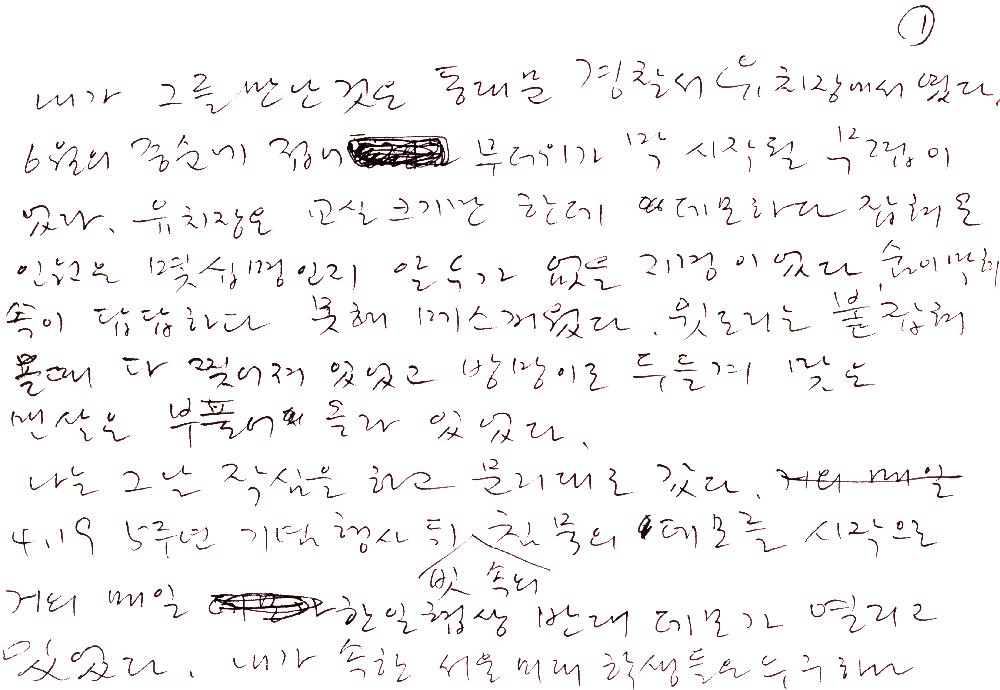 ①
내가 그를 만난 것은 동대문 경찰서 유치장에서 였다.
6월의 중순에 접어 무더위가 막 시작될 무렵이
었다. 유치장은 교실 크기만 한데 데모하다 잡혀온
인원은 몇십명인지 알 수가 없을 지경이었다 숨이막혀
속이 답답하다 못해 메스꺼웠다. 윗도리는 붙잡혀
올때 다 찢어져 있었고 방망이로 두들겨 맞은
맨살은 부풀어 올라 있었다.
나는 그날 작심을 하고 문리대로 갔다. 거의 매일
4.19 5주년 기념 행사 뒤 침묵의 데모를 시작으로
빗속의
거의 매일 한일협상 반대 데모가 열리고
있었다. 내가 속한 서울미대 학생들은